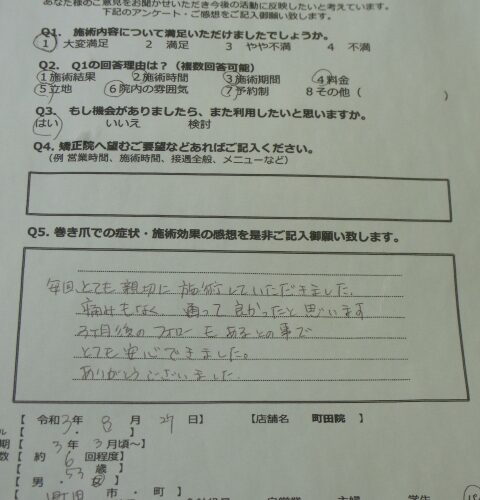 あなた様のご意見をお聞かせいただき今後の活動に反映したいと考えています。
下記のアンケート・ご感想をご記入御願い致します。
Q1. 施術内容について満足いただけましたでしょうか。
1 大変満足 2 満足 3 やや不満 4 不満
Q2. Q1の回答理由は？（複数回答可能）
1施術結果 2施術時間 3施術期間 4料金
5立地 6院内の雰囲気 7予約制 8その他（ ）
Q3. もし機会がありましたら、また利用したいと思いますか。
はい いいえ 検討
Q4. 矯正院へ望むご要望などあればご記入ください。
（例 営業時間、施術時間、接遇全般、メニューなど）
Q5. 巻き爪での症状・施術効果の感想を是非ご記入御願い致します。
毎回とても親切に施術していただきました。
痛みもなく 通って良かったと思います
3ヶ月後のフォローもあるとの事で
とても安心できました。
ありがとうございました。
【 令和3年 8 月 27 日】 【店舗名 町田院 】
ル 【 ・ 】
期 【 3 年 3 月頃～】
数 【 約 6 回程度】
【 53 歳 】
【 男 ・ 女 】
【 町田 市 ・ 町 】
自営業 主婦 学生 パ